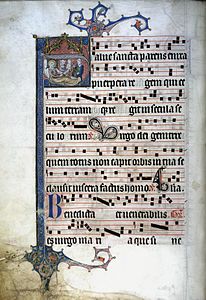 alve sancta parens enixa
puerpera regem qui ce
lum terram que regit in secula se
culorum Virgo dei genitrix
quem totus non capit orbis in tua se
clausit viscera factus homo
Benedicta et venerabilis
es virgo maria que sine